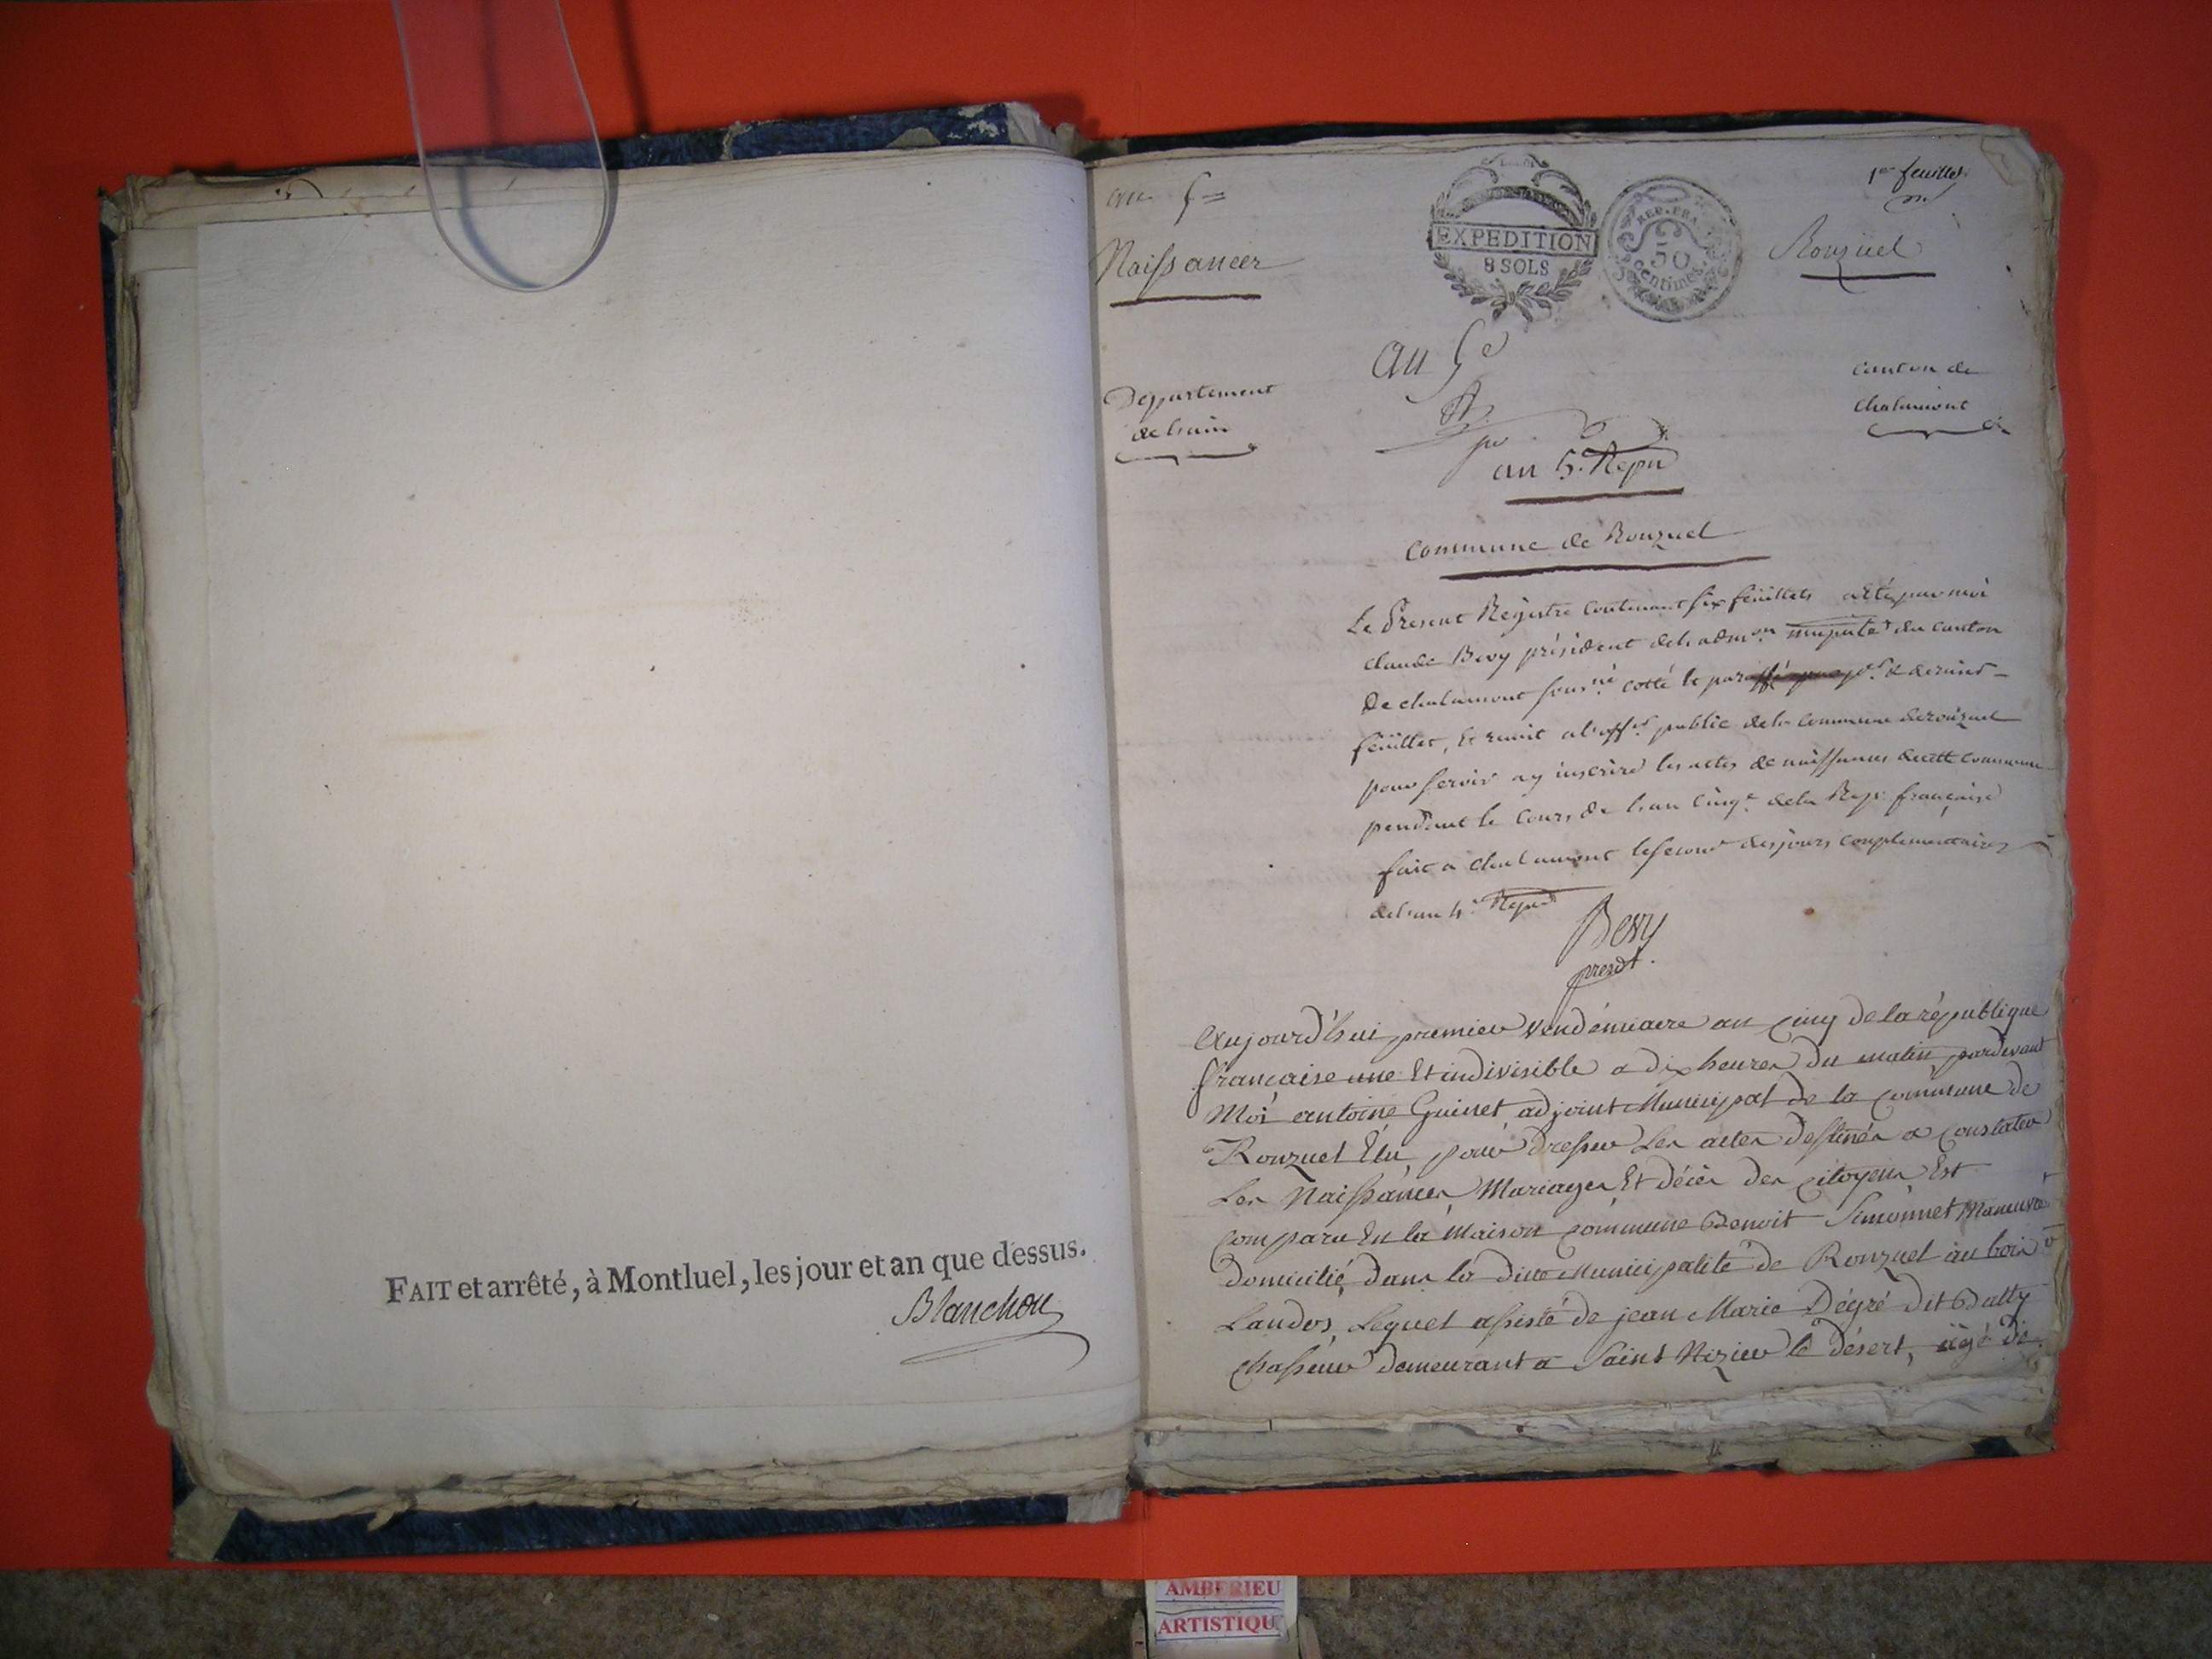 FAIT et arrêté, à Montluel, les jour et an que dessus.
Blanchon
an 5
Naissances
EXPEDITION
8 SOLS
REP. FRA.
50
centimes
1er feuillet
Ronzuel
Departement
de lain
an 5e
canton de
chalamont
an 5e Repu
commune de Ronzuel
Le Present Registre contenant six feuillets a été par moi
claude Bevy président de ladmon du canton
De chalamont cotté et & dernier
feuillet, et remit a loffr public de la commune de ronzuel
pour servir a y inscrire les actes de naissances de cette commune
pendant le cours de lan cinqe de la Rep. française
fait a chalamont le second des jours complementaires
de lan 4e
Bevy
presdt.
Aujourd'hui premier vendémiaire an cinq de la république
française une Et indivisible a dix heures du matin pardevant
Moi antoine Guinet adjoint Municipal de la commune de
Ronzuel Elu, pour dresser Les actes destinés a constater
Les Naissances, Mariages Et décès des citoyens Est
comparu En la Maison commune Benoit Simonnet Maneuvre
domicilié, dans la dite Municipalité de Ronzuel au bois
Landos, Lequel assisté de jean Marie Dégré dit Batty
chasseur demeurant a Saint Nizier le désert, âgé de
AMBERIEU
ARTISTIQU